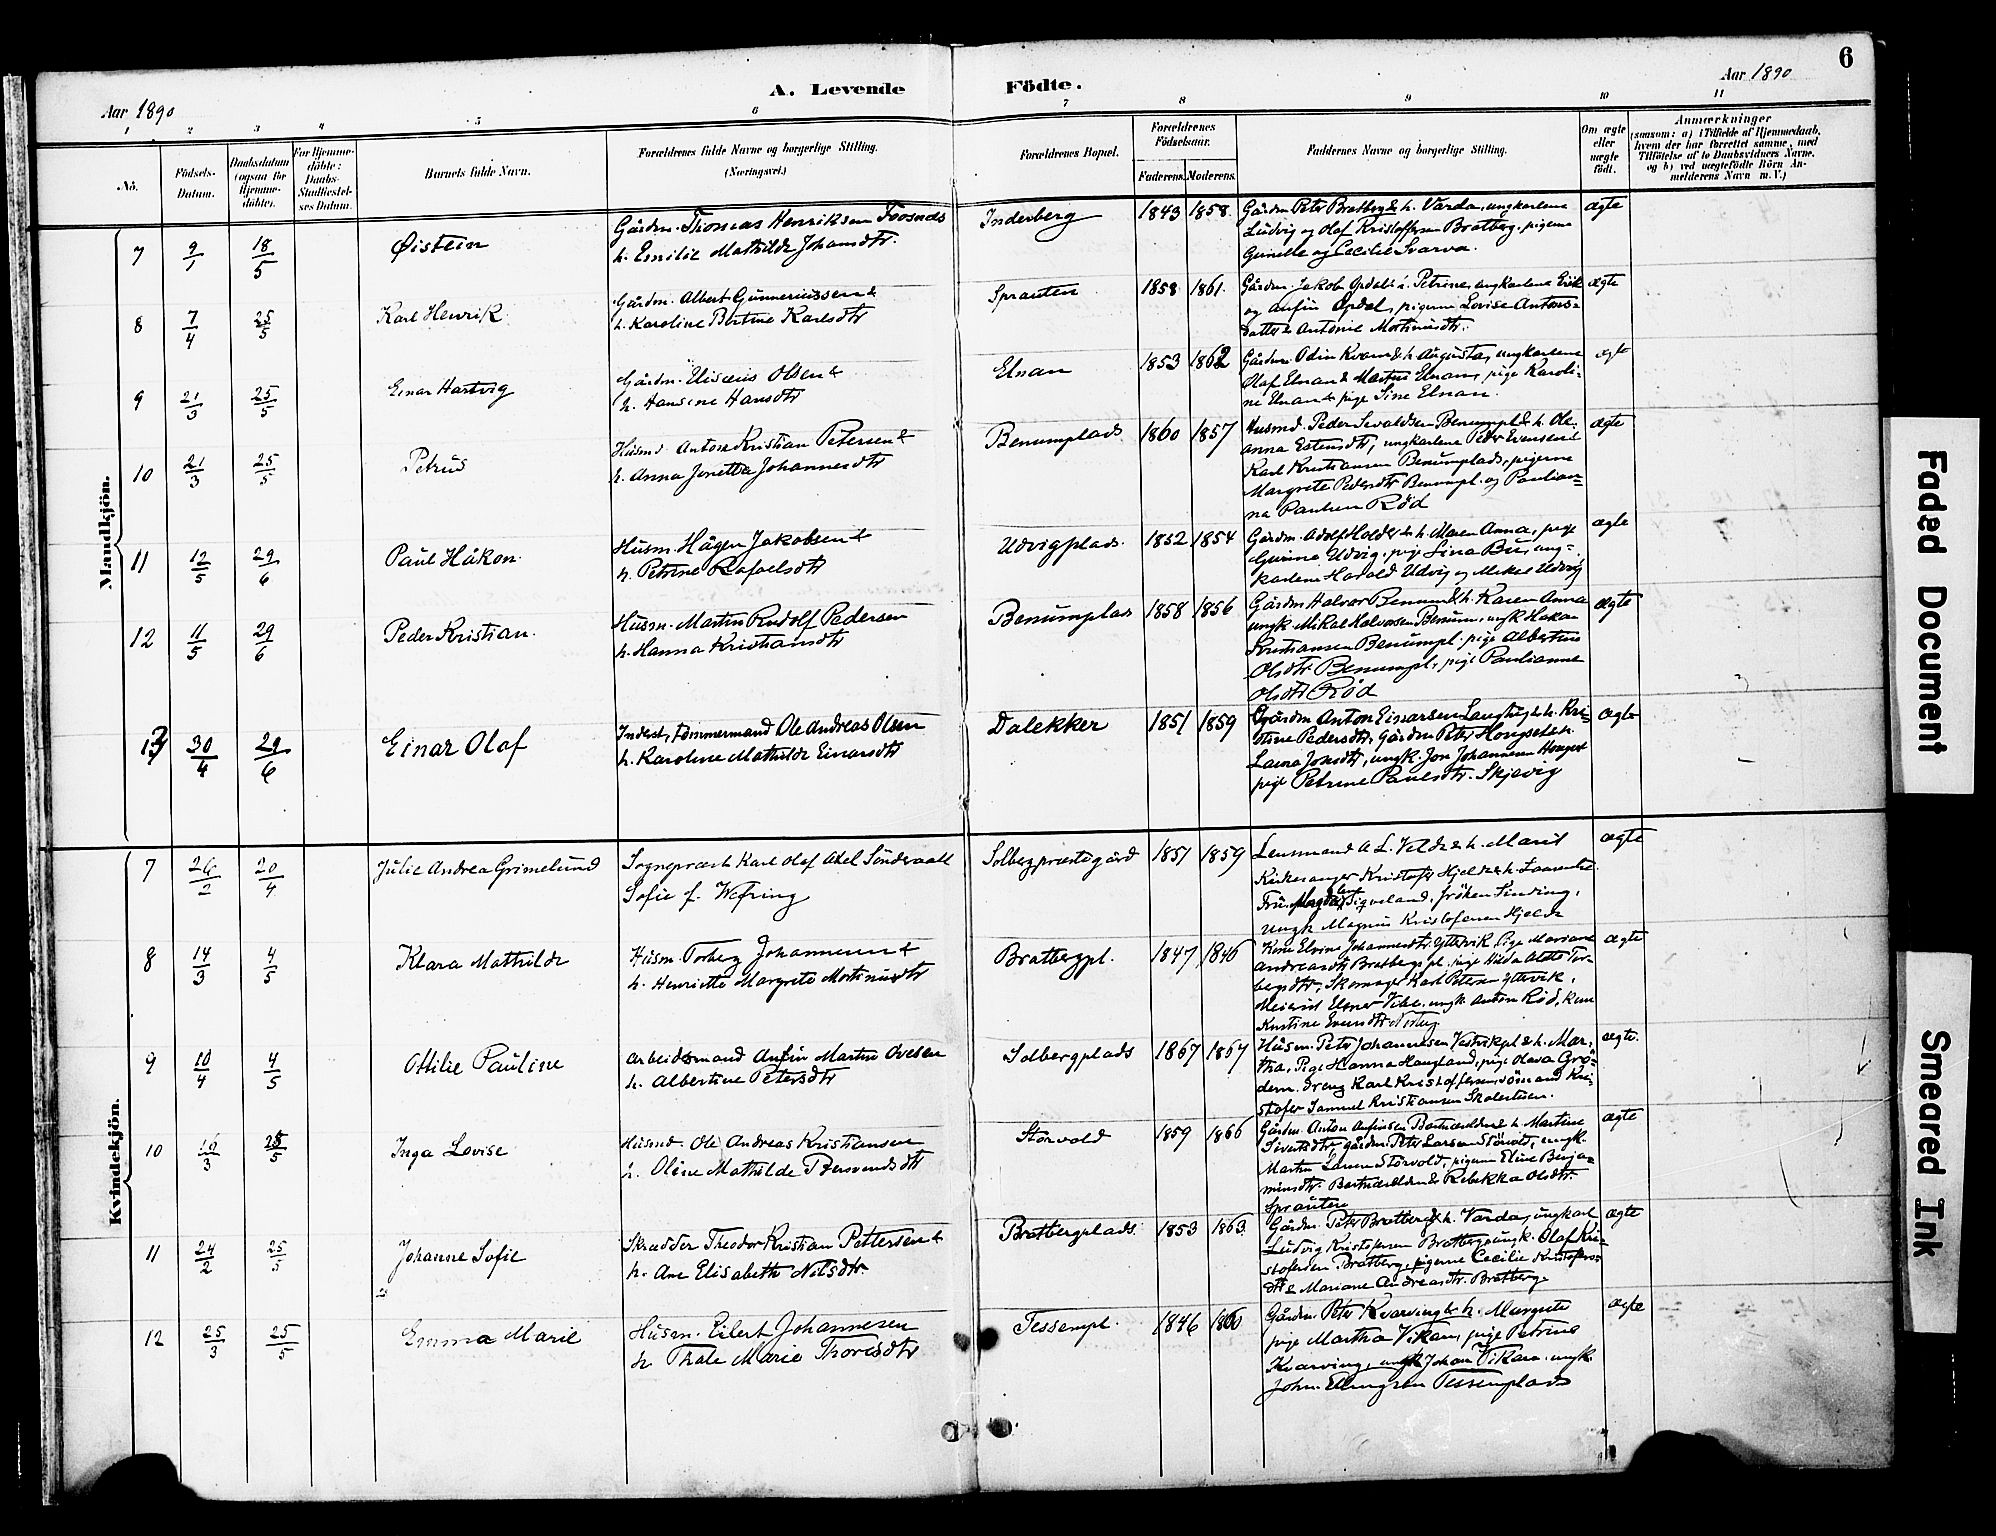 6
Aar 1890
A. Levende
Födte.
Aar 1890
1 2 3 4 5 6 7 8 9 10 11
No.
Födsels-
Datum.
Daabsdatum
(ogsaa for
Hjemme-
döbte).
For Hjemme-
döbte:
Daabs-
Stadfæstel-
ses Datum.
Barnets fulde Navn.
Forældrenes fulde Navne og borgerlige Stilling.
(Næringsvei.)
Forældrenes Bopæl.
Forældrenes
Födselsaar.
Faderens. Moderens.
Faddernes Navne og borgerlige Stilling.
Om ægte
eller
uægte
födt.
Anmærkninger
(saasom: a) i Tilfælde af Hjemmedaab,
hvem der har forrettet samme, med
Tilföielse af to Daabsvidners Navne,
og b) ved uægtefödte Börn An-
melderens Navn m. V.)
Mandkjön.
7 9/1 18/5 Øistein
Gårdm. Thomas Henriksen Foosnæs
h. Emilie Mathilde Johansdtr.
Inderberg 1843 1858.
Gårdm Peter Bratberg & h. Varda, ungkarlene
Ludvig og Olaf Kristoffersen Bratberg, pigerne
Gunelle og Cecilie Svarva.
ægte
8 7/4 25/5 Karl Henrik
Gårdm. Albert Gunneriussen &
h. Karoline Bertine Karlsdtr
Sprauten 1858 1861.
Gårdm Jakob Opdal & Petrine, ungkarlene Erik
og Anfin Opdal, pigerne Lovise Antons-
datter & Antonie Martinusdtr.
ægte
9 21/3 25/5 Einar Hartvig
Gårdm. Elisæus Olsen &
h. Hansine Hansdtr
Elnan 1853 1862
Gårdm. Odin Kvam & h. Augusta, ungkarlene
Olaf Elnan & Martin Elnan, pige Karoli-
ne Elnan & pige Sine Elnan.
ægte
10 21/3 25/5 Petrus
Husmd Anton Kristian Petersen &
h. Anna Jonetta Johannesdtr
Benumplads 1860 1857
Husmd. Peder Sivaldsen Benumpl & h. Ole-
anna Estensdtr, ungkarlene Peter Evensen &
Karl Kristiansen Benumplads, pigerne
Margrete Pedersdtr Benumpl. og Paulian-
na Paulsen Rød
ægte
11 12/5 29/6 Paul Håkon.
Husm. Hågen Jakobsen &
h. Petrine Rafaelsdtr
Udvigplads. 1852 1854
Gårdm. Adolf Holder & h. Maren Anna, pige
Gurina Udvig, pige Sina Bu, ung-
karlene Harald Udvig og Mikal Udvig
ægte
12 11/5 29/6 Peder Kristian.
Husm. Martin Rudolf Pedersen
h. Hanna Kristiansdtr
Benumplads 1858 1856
Gårdm Halvor Benum & h. Karen Anna
ungk. Mikal Halvorsen Benum, ungk Hakon
Kristiansen Benumpl. pige Albertine
Olsdtr. Benumpl, pige Paulianne
Olsdtr Rød
ægte
13 30/4 29/6 Einar Olaf
Inderst, Tømmermand Ole Andreas Olsen
h. Karoline Mathilde Einarsdtr
Dalekker 1851 1859
Gårdm Anton Einarsen Langhug & h. Kri-
stine Pedersdtr, Gårdm Peter Hongset & h.
Laura Jonsdtr, ungk. Jon Johannesen Hongset
pige Petrine Paulsdtr. Skjevig
ægte
Kvindekjön.
7 26/2 20/4 Julie Andrea Grimelund
Sognepræst Karl Olaf Axel Sönderaall
Sofie f. Wefring
Solbergprestegård 1851 1859
Lensmand A. L. Velde & h. Marit
Kirkesanger Kristofer Hjelde & h. Laurentze
Fru Magdalene Sigveland. frøken Sinding,
ungk Magnus Kristofersen Hjelde
ægte
8 14/3 4/5 Klara Mathilde
Husm. Torberg Johannesen &
h. Henriette Margrete Martinusdtr
Bratbergpl. 1847 1846
Kone Elvine Johannesdtr Yttervik, Pige Mariane
Andreasdtr Bratbergspl. pige Hilda Alette Tor-
bergsdtr, Skomager Karl Petersen Yttervik,
Meierist Elmer Vibe. ungk Anton Rød, kone
Kristine Evensdtr Norberg
ægte
9 10/4 4/5 Ottilie Pauline
Arbeidsmand Anfin Martin Ovesen
h. Albertine Petersdtr
Solbergplads 1867 1867
Husm. Peter Johannesen Vestvikpl & h. Mar-
tha, Pige Hanna Haugland, pige Olava Grö-
dem. dreng Karl Kristoffersen, sömand Kri-
stofer Samuel Kristiansen Skolestuen.
ægte.
10 16/3 25/5 Inga Lovise
Husmd. Ole Andreas Kristiansen
h. Oline Mathilde Bersvendsdtr
Størvold 1859 1866
Gårdm. Anton Anfinsen Bartnæsalden & h Martine
Sivertsdtr, gårdm Peter Larsen Størvold, ungk.
Martin Larsen Størvold, pigerne Eline Benja-
minsdtr. Bartnæsalden & Rebekka Olsdtr.
Sprauten
ægte
11 24/2 25/5 Johanne Sofie
Skrædder Theodor Kristian Pettersen &
h. Ane Elisabeth Nilsdtr.
Bratbergplads. 1853 1863.
Gårdm. Peter Bratberg & h. Varda, ungkarl
Ludvig Kristofersen Bratberg, ungk. Olaf Kri-
stofersen Bratberg, pigerne Cecilie Kristofers-
dtr & Mariane Andreasdtr. Bratberg.
ægte
12 25/3 25/5 Emma Marie
Husm. Eilert Johannesen
h Thale Marie Thoresdtr
Tessempl. 1846 1860
Gårdm. Peter Kvarving & h. Margrete
pige Martha Vikan, pige Petrine
Kvarving, ungk Johan Vikan. ungk.
John Elingsen Tessemplads
ægte
Faded Document
Smeared Ink